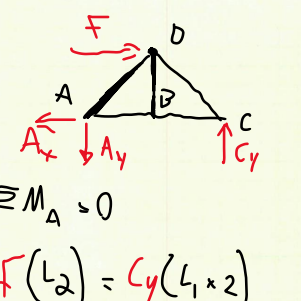 F
D
A
B
C
Ax
Ay
Cy
ΣM_A = 0
F(L2) = Cy(L1 × 2)